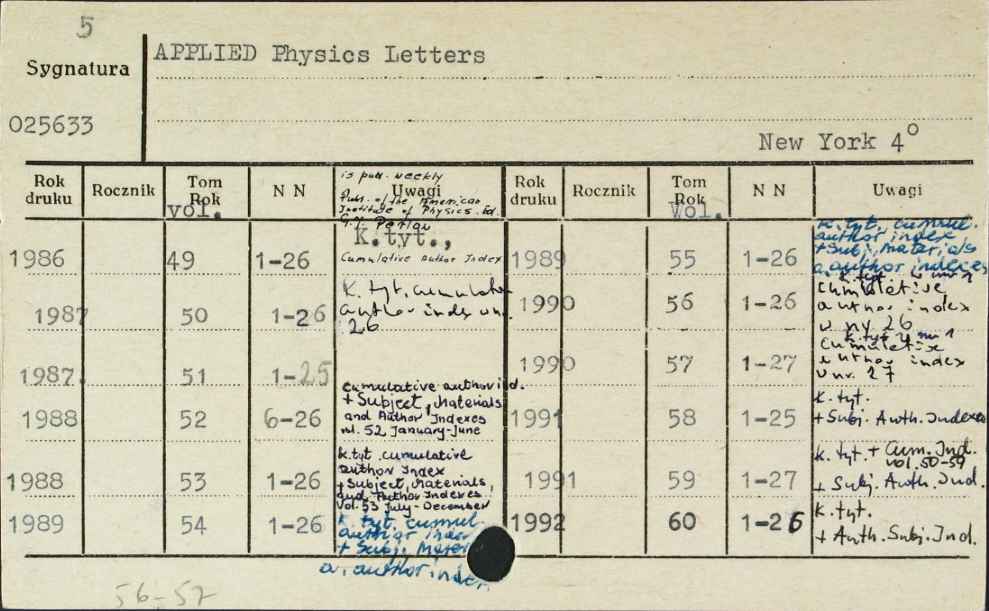 5
Sygnatura
APPLIED Physics Letters
025633
New York 4°
Rok druku Rocznik Tom Rok N N Uwagi Rok druku Rocznik Tom Rok N N Uwagi
vol. vol.
is publ. weekly
Publ. of the American
Institute of Physics. Ed.
1986 49 1-26 K.tyt.,
Cumulative Author Index
1987 50 1-26 K. tyt. cumulative
author index w nr.
26
1987. 51 1-25
1988 52 6-26 cumulative author ind.
+ Subject, Materials
and Author Indexes
vol. 52 January-June
1988 53 1-26 k.tyt cumulative
author Index
+ Subject, Materials,
and Author Indexes
Vol. 53 July - December
1989 54 1-26 k. tyt. cumul.
author index
+ Subj. Mater
a. author index.
1989 55 1-26 k. tyt. cumul.
author index
+ Subj. Materials
a. author indexes
1990 56 1-26 k. tyt w nr 1
cumulative
author index
w nr 26
1990 57 1-27 k. tyt w nr 1
cumulative
author index
w nr. 27
1991 58 1-25 k. tyt.
+ Subj. Auth. Indexes
1991 59 1-27 k. tyt. + Cum. Ind.
vol. 50-59
+ Subj. Auth. Ind.
1992 60 1-26 k. tyt.
+ Auth. Subj. Ind.
56-57